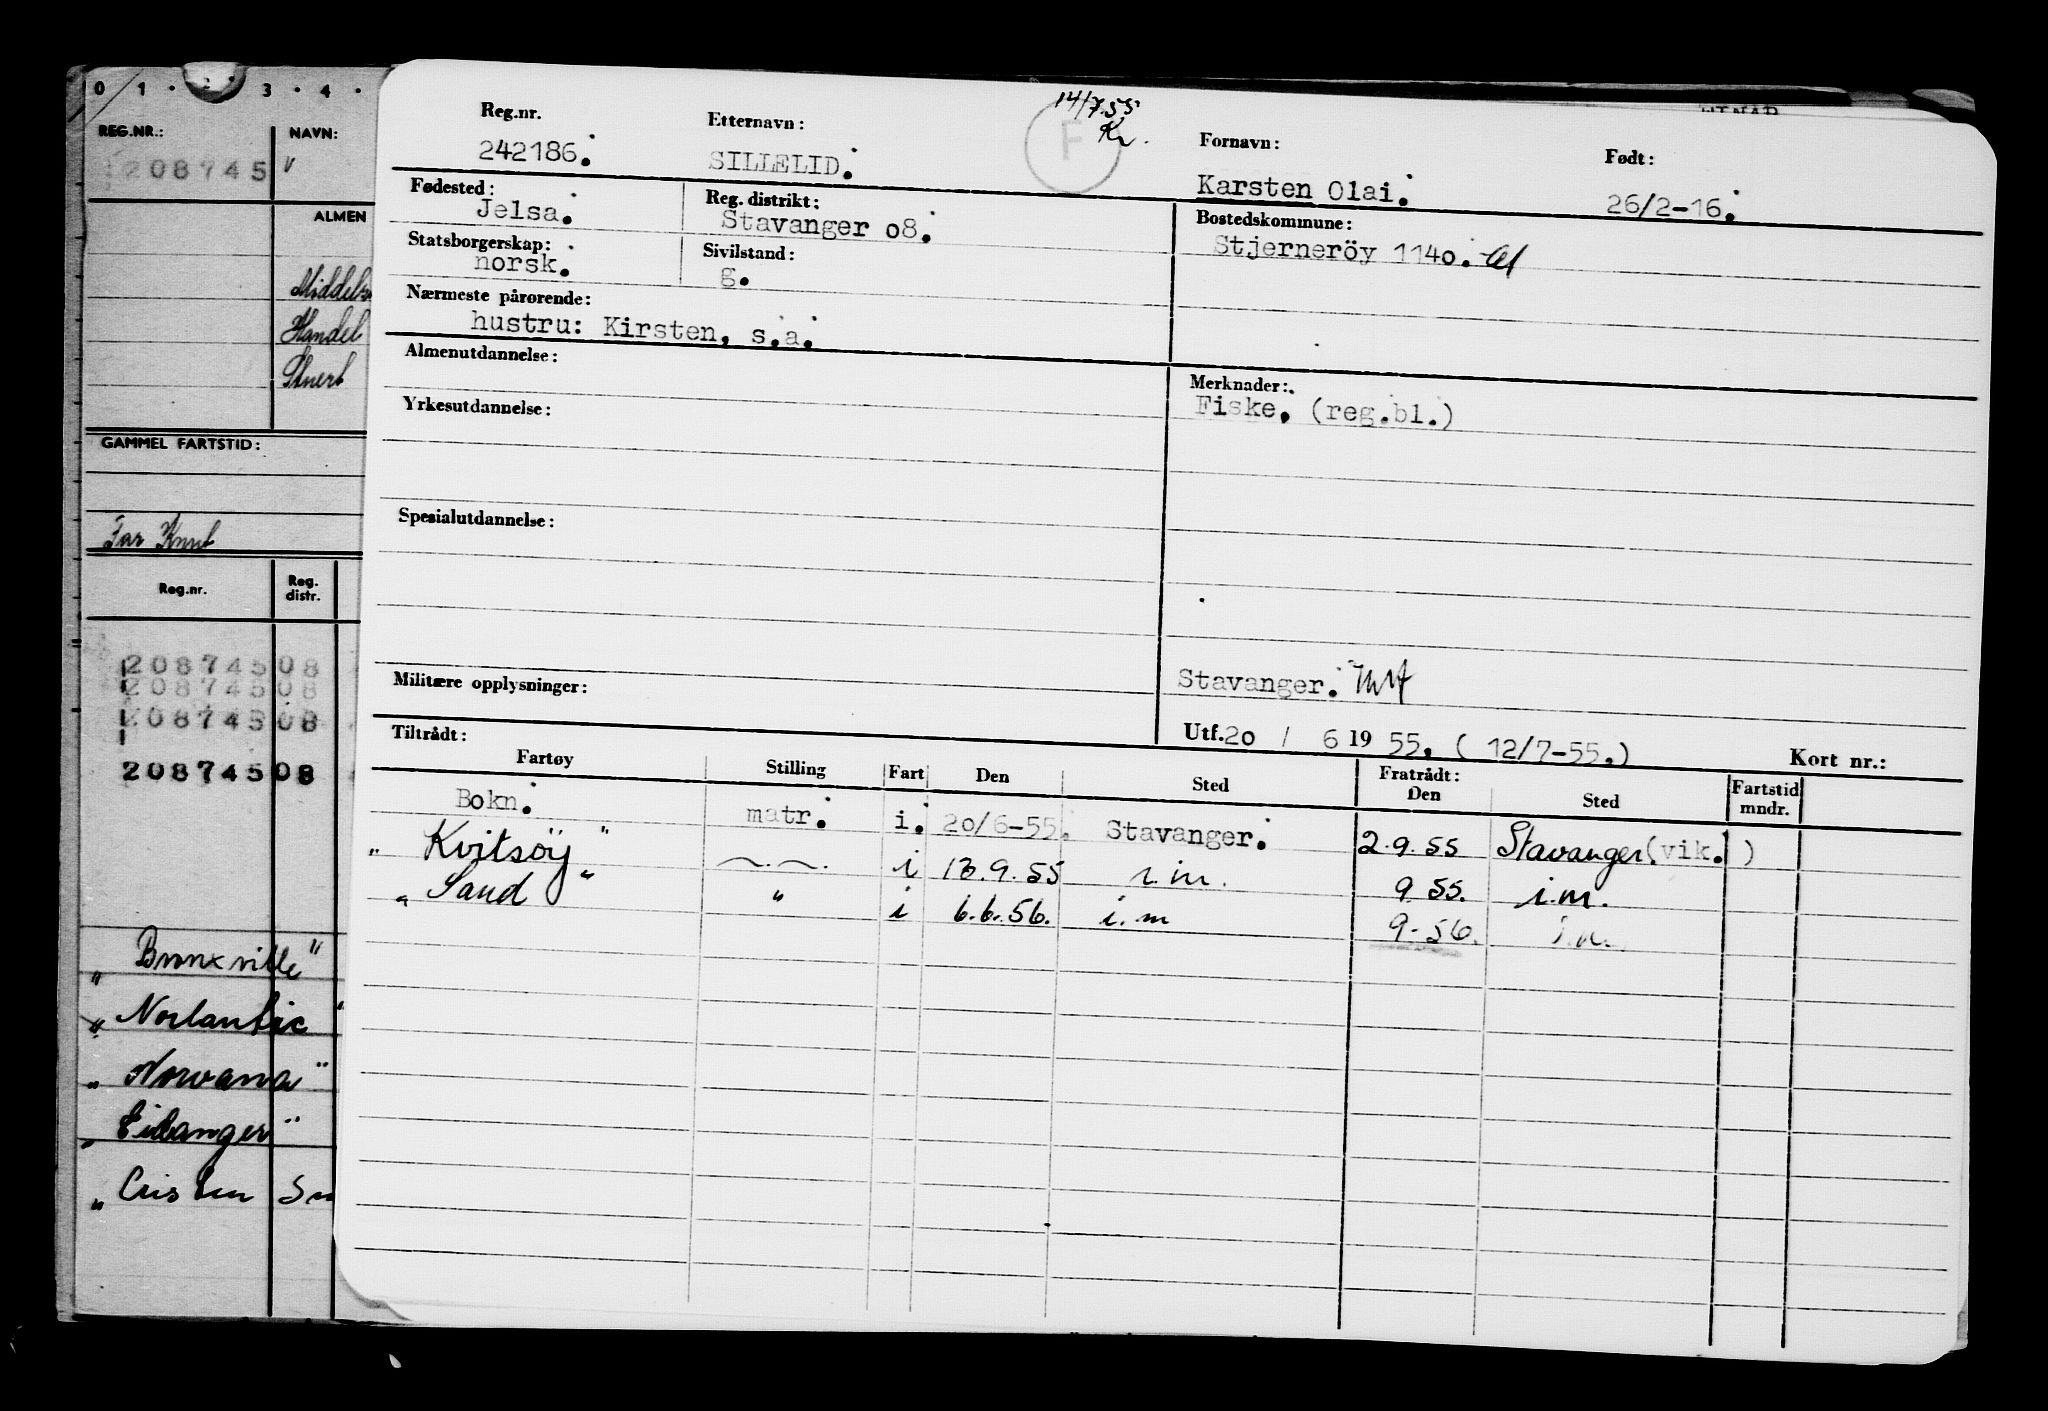 0 1 · 3 · 4 ·
REG.NR.:
NAVN:
208745
ALMEN
Handel
GAMMEL FARTSTID:
Far Knut
Reg.nr.
Reg. distr.
20874508
20874508
20874508
20874508
„ Bronxville"
„ Norlantic "
„ Norvana "
„ Eidanger "
„ Cristen
14/7.55
Kr.
F
Reg.nr.
Etternavn:
Fornavn:
Født:
242186.
SILLELID.
Karsten Olai.
26/2-16.
Fødested:
Reg. distrikt:
Bostedskommune:
Jelsa.
Stavanger 08.
Stjerneröy 1140.
Statsborgerskap:
Sivilstand:
norsk.
g.
Nærmeste pårørende:
hustru: Kirsten, s.a.
Almenutdannelse:
Merknader:
Yrkesutdannelse:
Fiske, (reg.bl.)
Spesialutdannelse:
Militære opplysninger:
Stavanger.
Utf. 20 / 6 19 55. ( 12/7-55.)
Kort nr.:
Tiltrådt:
Fratrådt:
Fartøy Stilling Fart Den Sted Den Sted Fartstid mndr.
Bokn. matr. i. 20/6-55. Stavanger. 2.9.55 Stavanger (vik. )
„ Kvitsöy " —.—. i 13.9.55 i.m. 9 55. i.m.
„ Sand " " i 6.6.56. i.m 9-56. i.m.